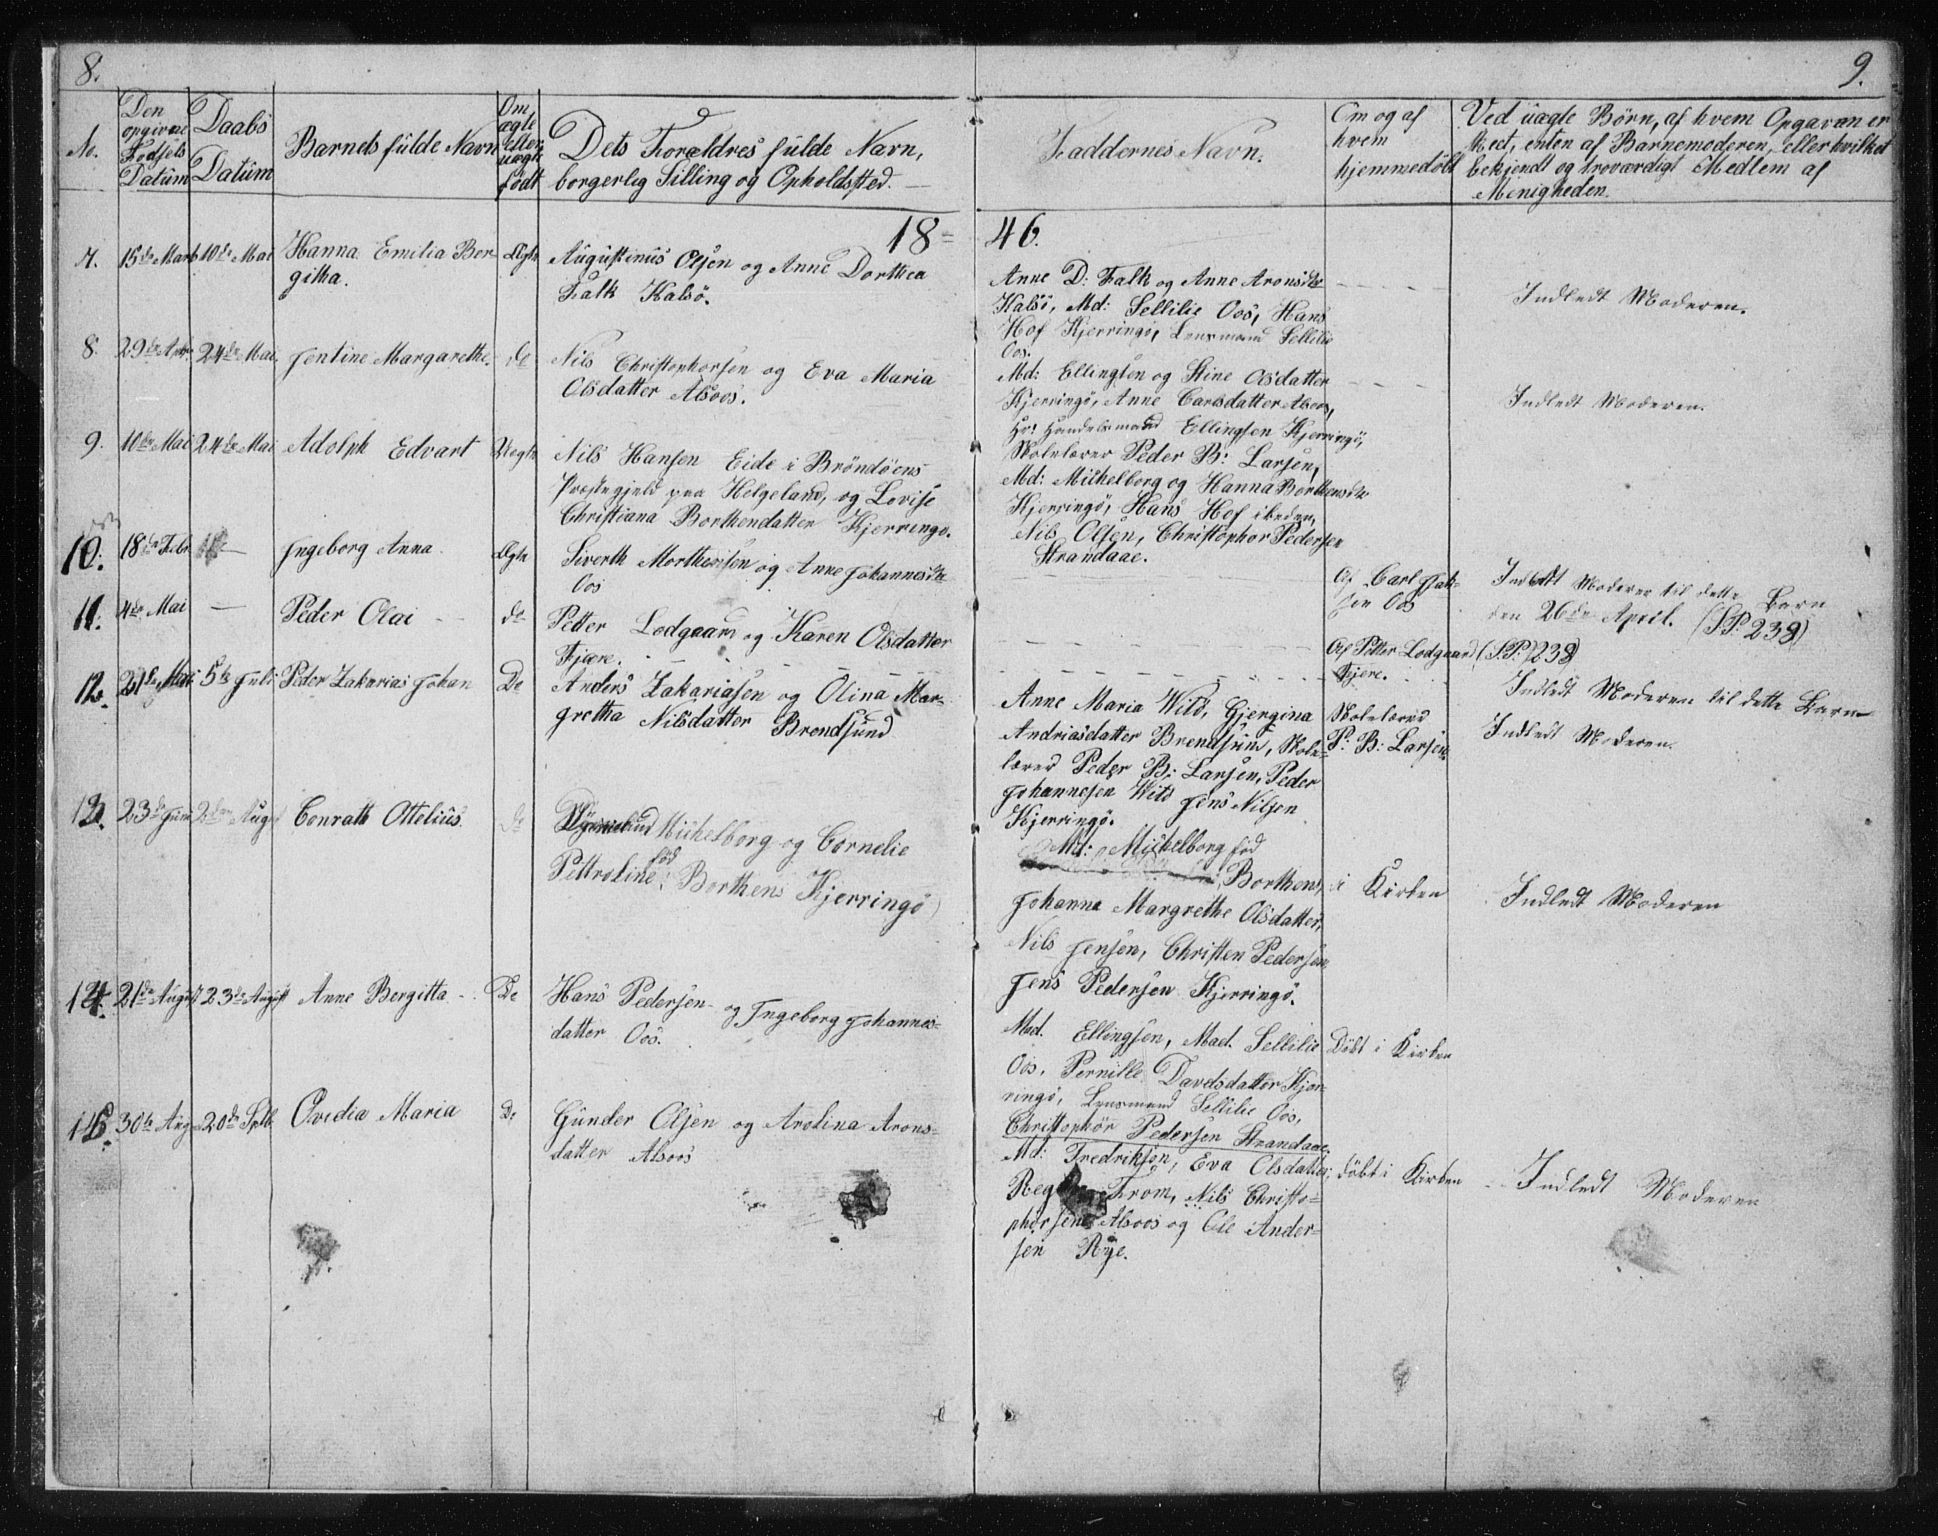 8.
9.
No.
Den opgivne Fødsels Datum
Daabs Datum
Barnets fulde Navn
Om ægte eller uægte født
Dets Forældres fulde Navn,
borgerlig Stilling og Opholdssted.
Faddernes Navn.
Om og af
hvem
hjemmedøbt
Ved uægte Børn, af hvem Opgaven er
skeet, enten af Barnemoderen, eller hvilket
bekjendt og troværdigt Medlem af
Menigheden.
18=
46.
7. 15de Marts 10de Mai Hanna Emilia Ber-
githa.
Ægte
Augustinus Olsen og Anne Dorthea
Falk Kalsö.
Anne D: Falk og Anne Aronsdtr
Kalsö, Md: Sellilie Oos, Hans
Hof Kjerringö, Lensmand Sellilie
Oos.
Indledt Moderen.
8. 29de Apr. 24de Mai. Jentine Margarethe. do
Nils Christophersen og Eva Maria
Olsdatter Alsoos.
Md: Ellingsen og Stine Olsdatter
Kjerringö, Anne Carlsdatter Alsoos,
Hr: Handelsmand Ellingsen Kjerringö,
Skolelærer Peder B: Larsen,
Indledt Moderen.
9. 10de Mai 24de Mai Adolph Edvart Uegte
Nils Hansen Eide i Bröndöens
Præstegjeld paa Helgeland, og Lovise
Christiana Borthendatter Kjerringö.
Md: Michelborg og Hanna Borthensdtr
Kjerringö, Hans Hof ibiden,
Nils Olsen, Christophor Pedersen
Strandaae.
10. 18de Febr. — Ingeborg Anna. Ægte
Siverth Morthensen og Anne Johannesdtr
Oos
Af Carl
sen Oos
Indledt Moderen til dette Barn
den 26de April. (S.P. 238)
11. 4de Mai — Peder Olai do
Petter Lodgaard og Karen Olsdatter
Fjære.
Af Petter Lodgaard
Fjere.
(S.P. 238)
Indledt Moderen til dette Barn
12. 21de Mai 5te Juli Peder Zakarias Johan Do
Anders Zakariasen og Olina Mar-
gretha Nilsdatter Brendsund
Anne Maria Wild, Gjergina
Andriasdatter Brendsund, Skole-
lærer Peder B: Larsen, Peder
Johannesen Wild Jens Nilsen
Kjerringö.
Skolelærer
P: B: Larsen.
Indledt Moderen.
13. 23de Juni 2den August Conrath Ottelius. do
Michelborg og Cornelie
Pettroline: föd Borthens Kjerringö
Md: Michelborg föd
Borthens,
Johanna Margrethe Olsdatter,
Nils Jensen, Christen Pedersen
Jens Pedersen Kjerringö.
i Kirken
Indledt Moderen
14. 21de August 23de August Anne Bergitta Do
Hans Pedersen og Ingeborg Johannes-
datter Oos.
Md. Ellingsen, Mad. Sellilie
Oos, Pernille Davidsdatter Kjer-
ringö, Lensmand Sellilie Oos,
Christophör Pedersen Strandaae.
Döbt i Kirken
15. 30te Aug. 20de Septb. Ovidia Maria Do
Günder Olsen og Arolina Arons-
datter Alsoos
Md: Fredriksen, Eva Olsdatter,
From, Nils Christo-
phersen Alsoos og Ole Ander-
sen Rye.
döbt i Kirken
Indledt Moderen